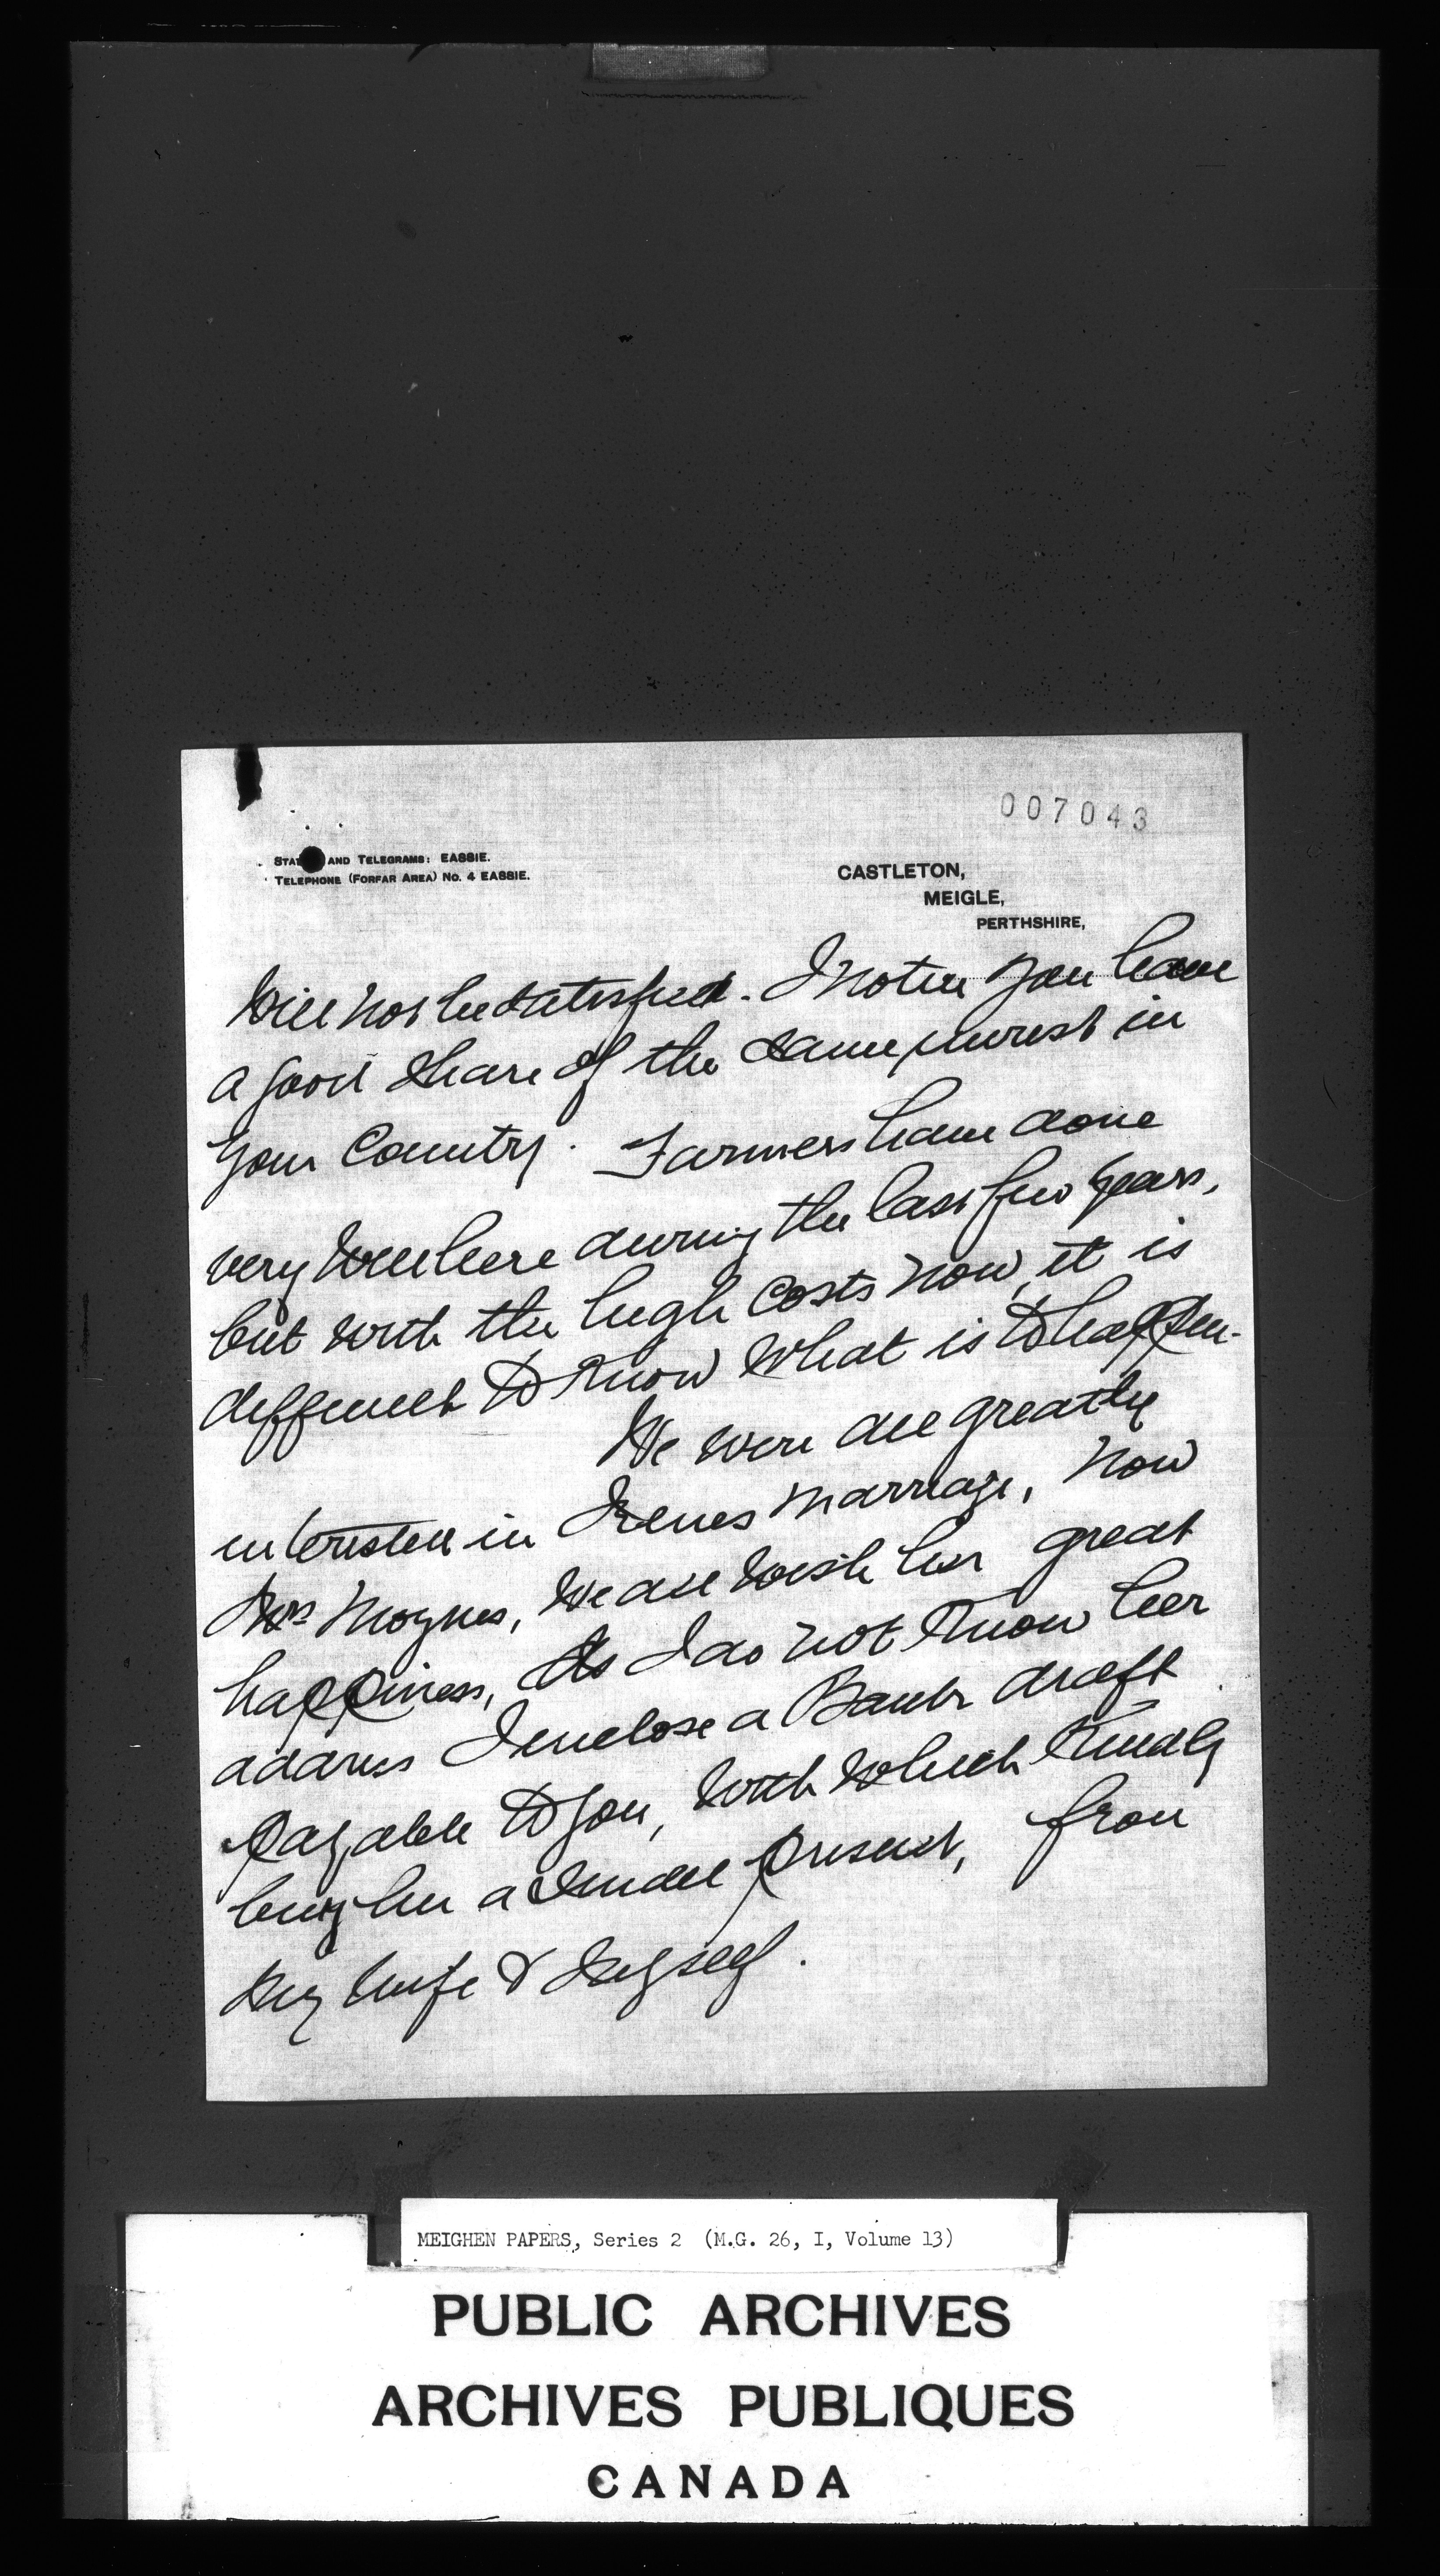 007043
STAT AND TELEGRAMS: EASSIE.
TELEPHONE (FORFAR AREA) No. 4 EASSIE.
CASTLETON,
MEIGLE,
PERTHSHIRE,
Will not be satisfied. I notice you have
a good share of the same unrest in
your Country. Farmers have done
very well here during the last few years,
but with the high costs now, it is
difficult to know what is to happen.
We were all greatly
interested in Irenes marriage, now
Mrs , We all wish her great
happiness, As I do not know her
address I enclose a Bank draft
payable to you, with which kindly
buy her a small present, from
my wife & myself.
MEIGHEN PAPERS, Series 2 (M.G. 26, I, Volume 13)
PUBLIC ARCHIVES
ARCHIVES PUBLIQUES
CANADA